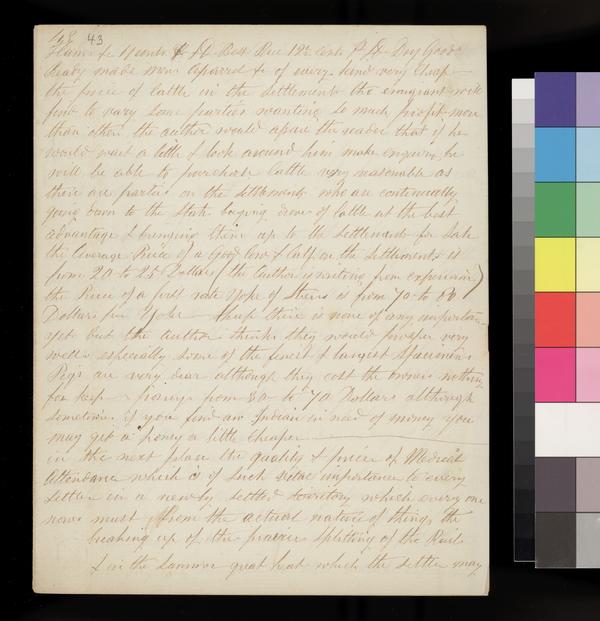 43
Hams &c 9 cents P lb Best Rice 12½ cents P lb Dry Goods
Ready made mens Apparrel &c of every kind very cheap
the price of Cattle in the settlement the emigrant will
find to vary some parties wanting so much profit more
than others the author would apsure the reader that if he
would wait a little & look around him make enquiry he
will be able to purchase Cattle very reasonable as
there are parties on the settlements who are continually
going down to the States buying droves of Cattle at the best
advantage & bringing them up to the settlements for sale
the Average Price of a Good Cow & Calf on the settlements is
from 20 to 25 Dollars (the Author is writing from experience)
the Price of a first rate Yoke of Steers is from 70 to 80
Dollars per Yoke Sheep there is none of any importance
yet but the author thinks they would prosper very
well especially some of the finest & largest specimens
Pigs are very dear although they cost the owners nothing
for keep poneys from 30 to 70 Dollars although
sometimes if you find an Indian in need of money you
may get a poney a little cheaper
in the next place the quality & price of Medical
Attendance which is of such vital importance to every
settler in a newly settled country which every one
must from the actual nature of things the
breaking up of the prairie splitting of the Rails
& in the Summer great heat which the settler may